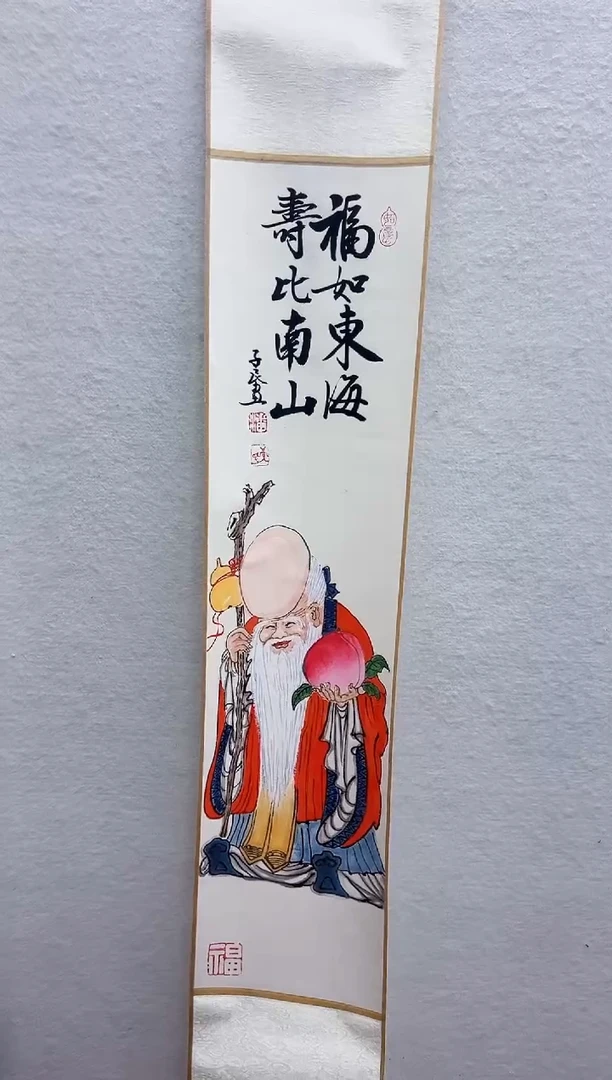 福如東海
壽比南山
福